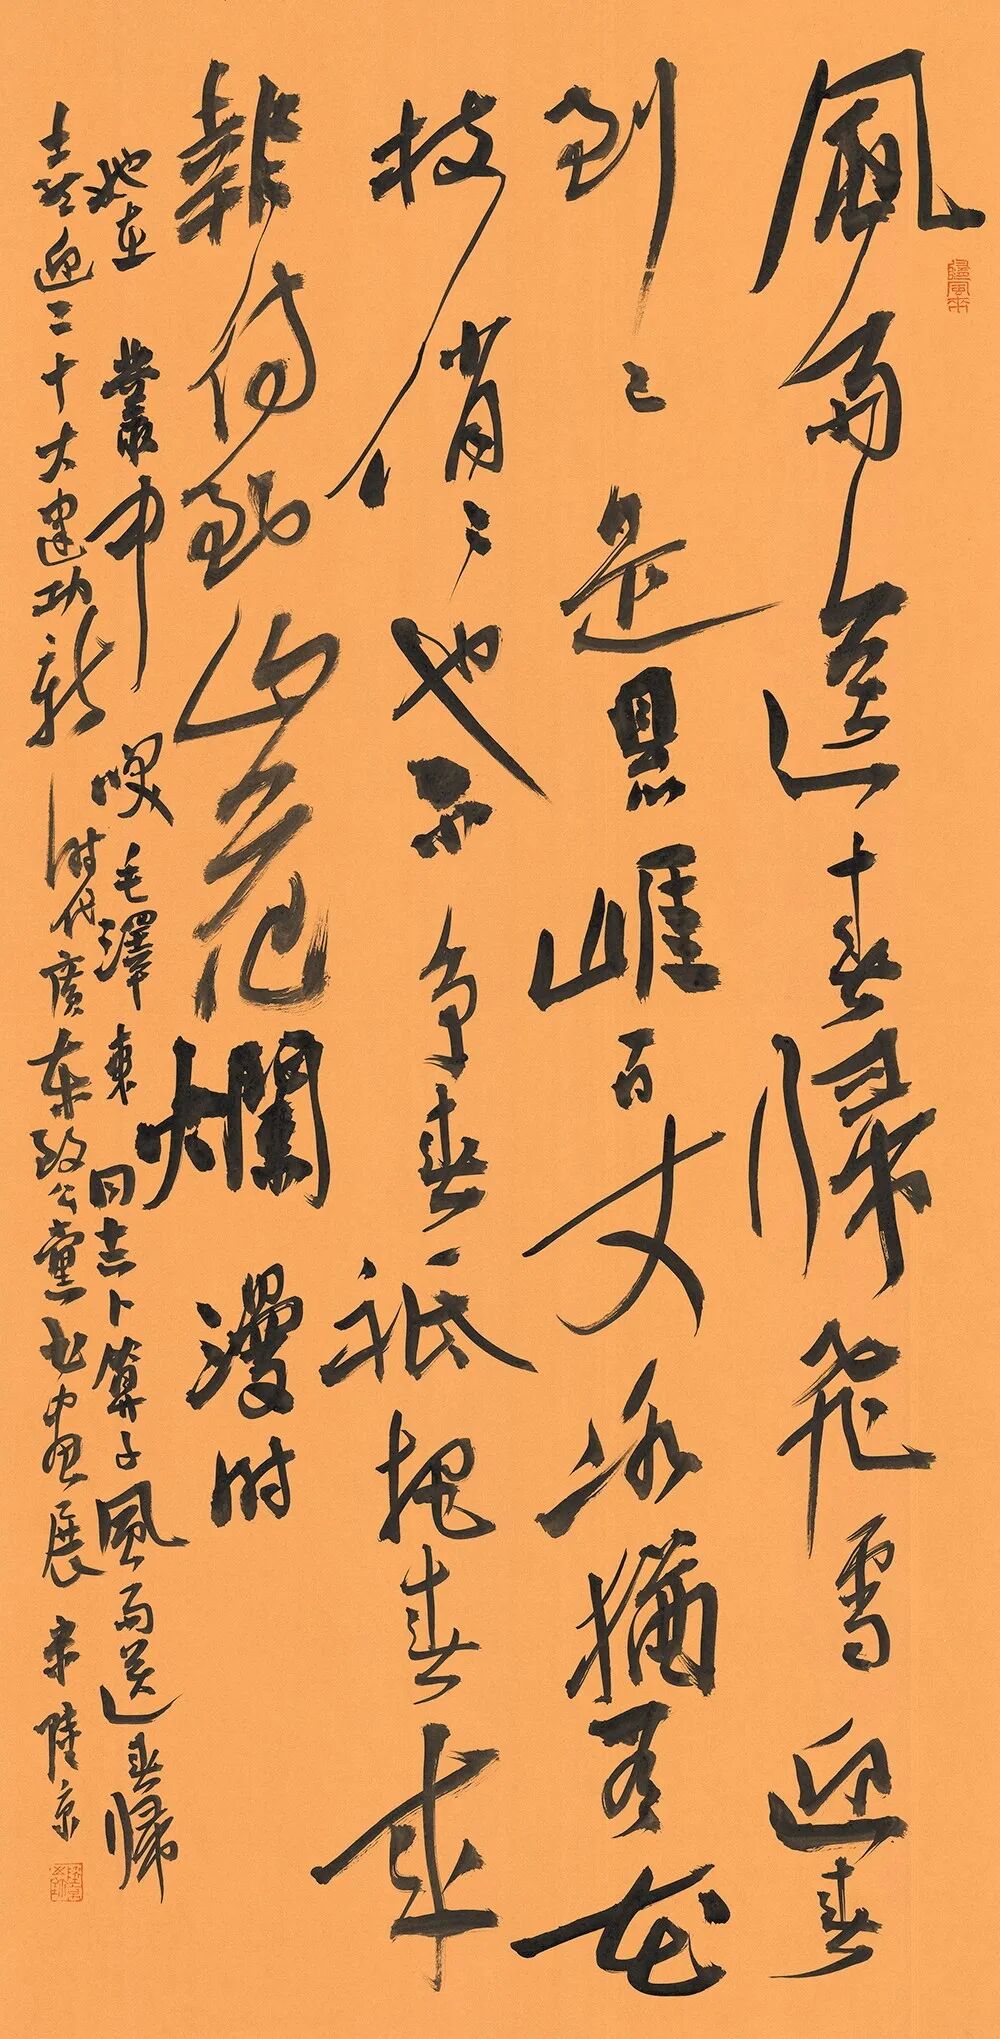 風雨送春歸飛雪迎春
到已是悬崖百丈冰猶有花
枝俏〻也不争春祇把春來
報待到山花爛漫时
她在叢中咲毛澤東同志卜算子風雨送春歸
喜迎二十大建功新时代廣東致公黨书畫展宋陸京